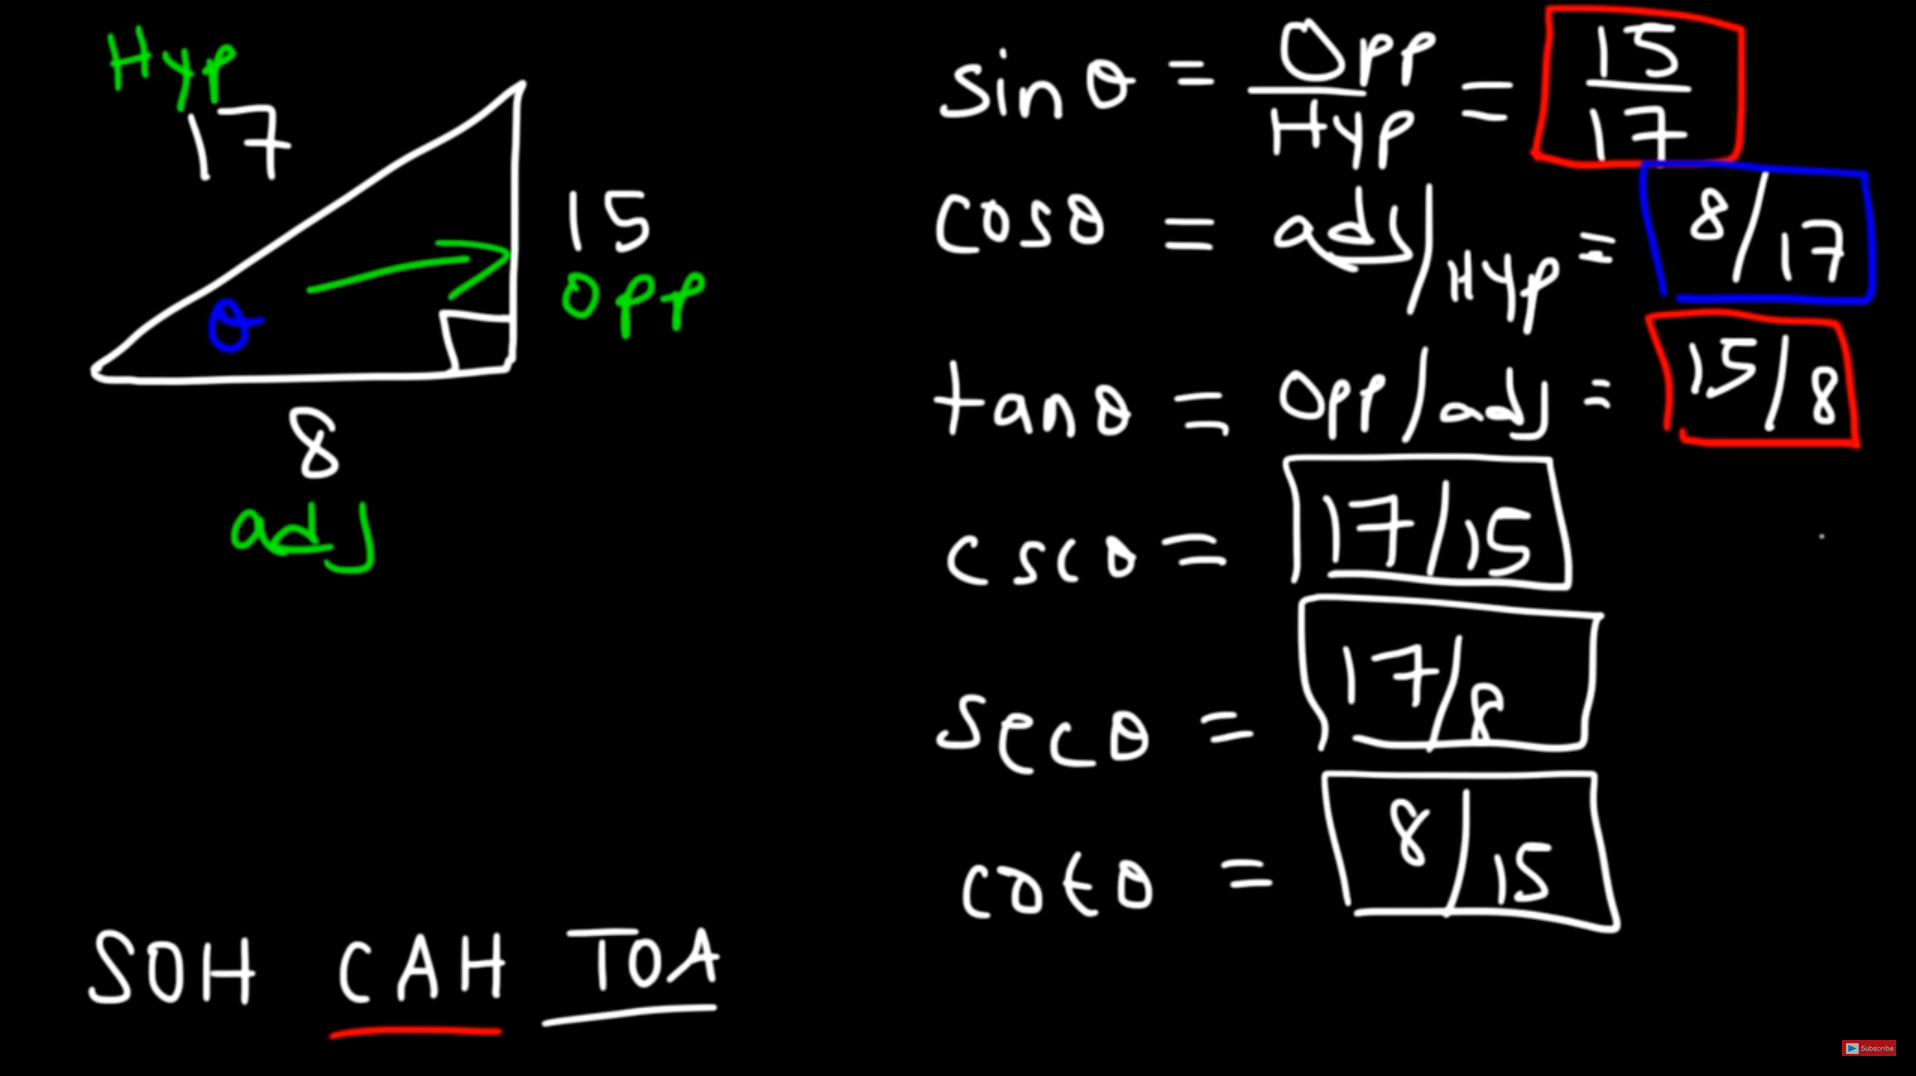 Hyp
17
θ
15
opp
8
adj
SOH CAH TOA
sinθ = Opp/Hyp = 15/17
cosθ = adj/Hyp = 8/17
tanθ = Opp/adj = 15/8
cscθ = 17/15
secθ = 17/8
cotθ = 8/15
Subscribe